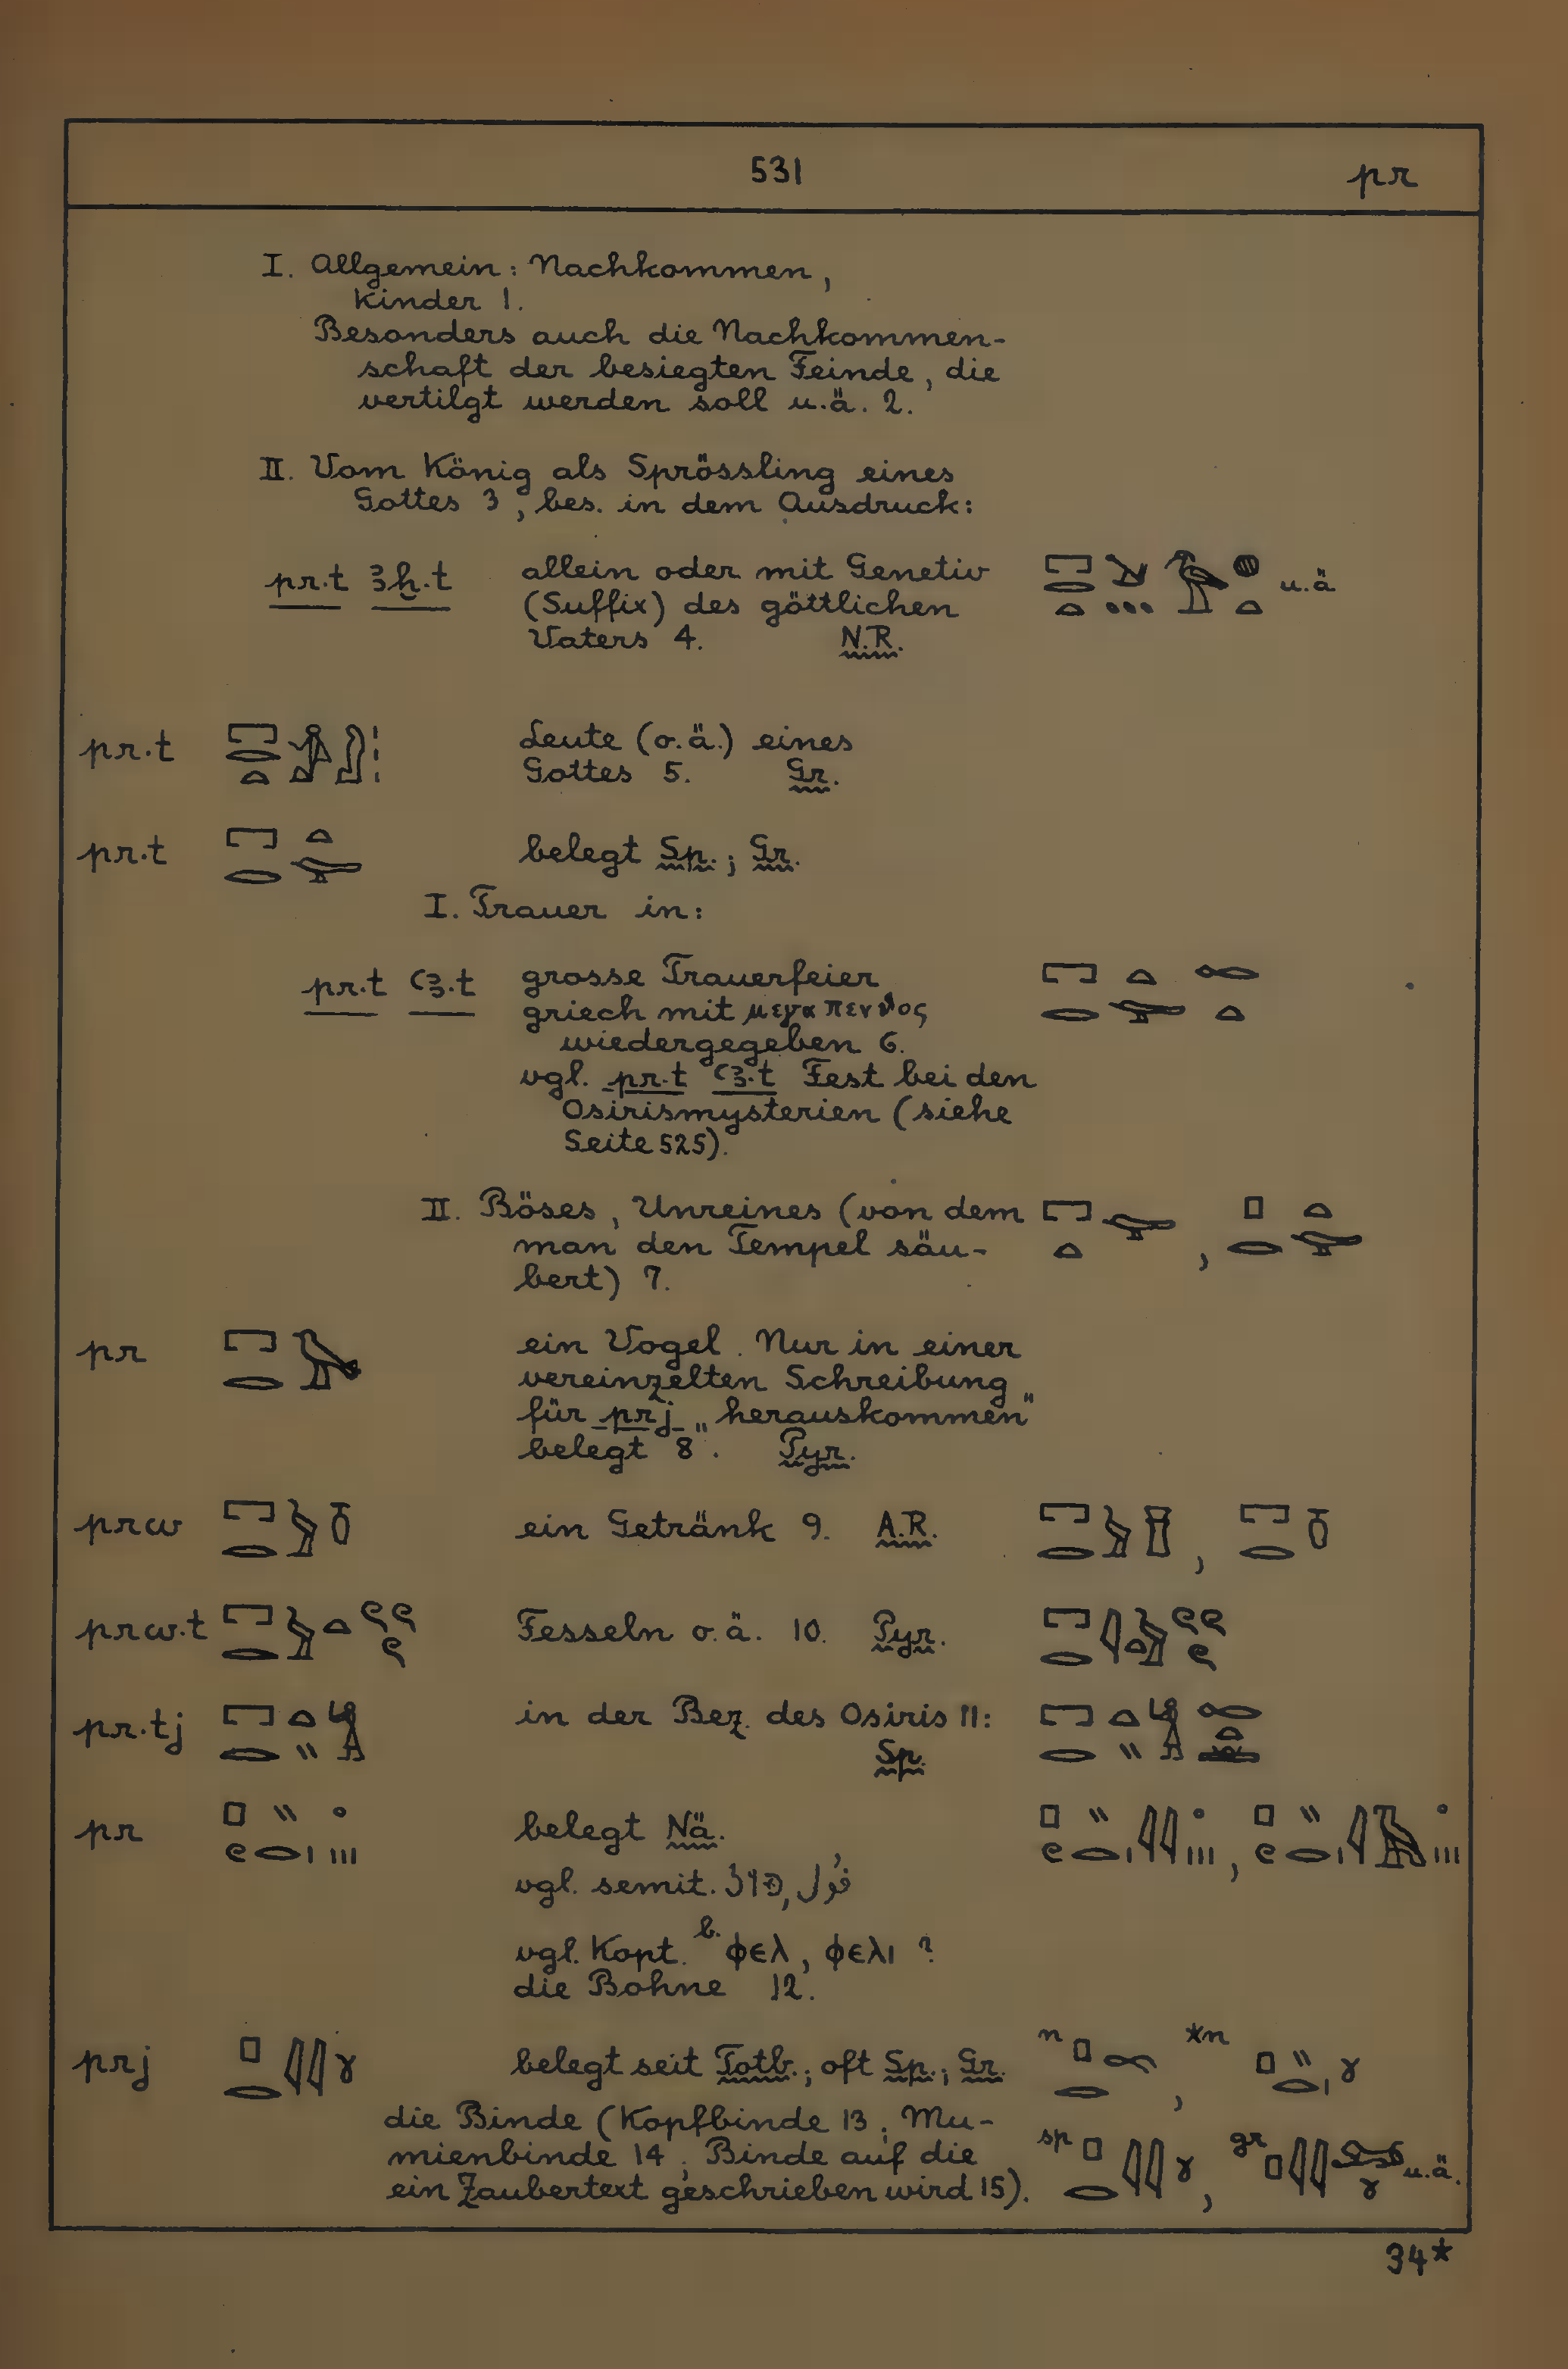 531
pr
I. Allgemein: Nachkommen,
Kinder 1.
Besonders auch die Nachkommen-
schaft der besiegten Feinde, die
vertilgt werden soll u.ä. 2.
II. Vom König als Sprössling eines
Gottes 3, bes. in dem Ausdruck:
pr.t ꜣḫ.t allein oder mit Genetiv u.ä
(Suffix) des göttlichen
Vaters 4. N.R.
pr.t Leute (o.ä.) eines
Gottes 5. Gr.
pr.t belegt Sp.; Gr.
I. Trauer in:
pr.t ꜥꜣ.t grosse Trauerfeier
griech mit μεγα πενθος
wiedergegeben 6.
vgl. pr.t ꜥꜣ.t Fest bei den
Osirismysterien (siehe
Seite 525).
II. Böses, Unreines (von dem
man den Tempel säu-
bert) 7.
pr ein Vogel. Nur in einer
vereinzelten Schreibung
für prj „herauskommen"
belegt 8. Pyr.
prw ein Getränk 9. A.R.
prw.t Fesseln o.ä. 10. Pyr.
pr.tj in der Bez. des Osiris 11:
Sp.
pr belegt Nä.
vgl. semit. פול, فُول
vgl. Kopt. b. ϕελ, ϕελι ?
die Bohne 12.
prj belegt seit Totb.; oft Sp.; Gr. n , *n
die Binde (Kopfbinde 13; Mu-
mienbinde 14; Binde auf die sp , gr u.ä.
ein Zaubertext geschrieben wird 15).
34*